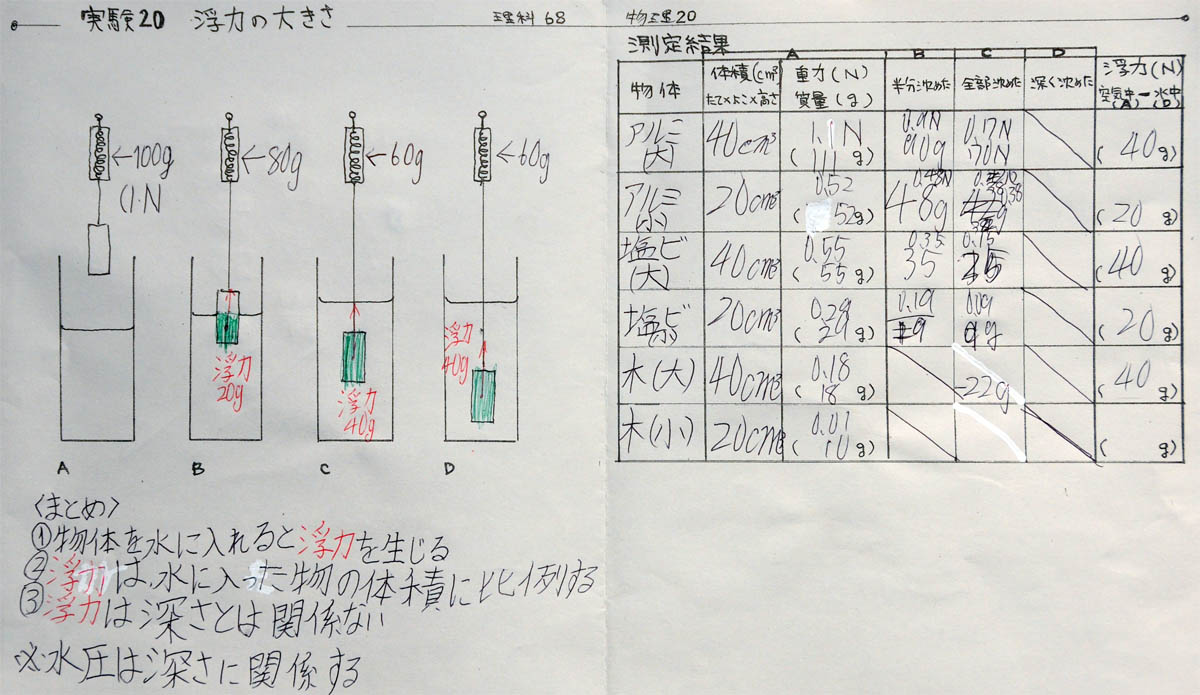 実験20 浮力の大きさ 理科 68
←100g
(1N
←80g
←60g
←60g
浮力
20g
浮力
40g
浮力
40g
A B C D
〈まとめ〉
①物体を水に入れると浮力を生じる
②浮力は、水に入った物の体積に比例する
③浮力は深さとは関係ない
※水圧は深さに関係する
物理20
測定結果
A B C D
物体 体積(cm³) たて×よこ×高さ 重力(N) 質量(g) 半分沈めた 全部沈めた 深く沈めた 浮力(N) 空気中(A)ー水中(D)
アルミ(大) 40cm³ 1.1N (111g) 0.9N 90g 0.17N 70N (40g)
アルミ(小) 20cm³ 0.52 (52g) 0.48N 48g (20g)
塩ビ(大) 40cm³ 0.55 (55g) 0.35 35 0.15 15 (40g)
塩ビ(小) 20cm³ 0.29 (29g) 0.19 19 0.09 9g (20g)
木(大) 40cm³ 0.18 (18g) -22g (40g)
木(小) 20cm³ 0.01 (10g) ( g)